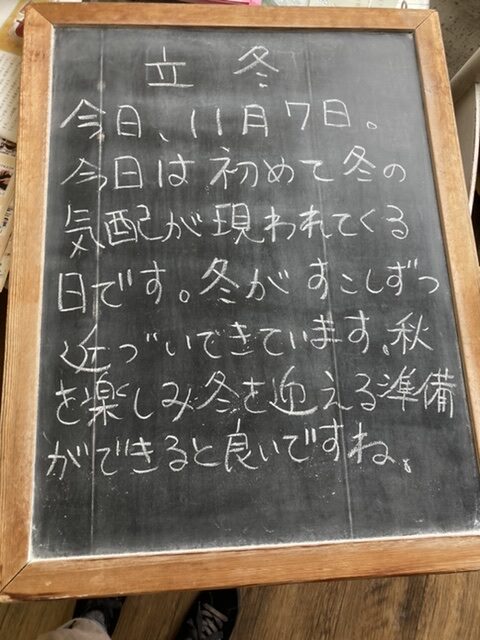 立冬
今日、11月7日。
今日は初めて冬の
気配が現われてくる
日です。冬がすこしずつ
近づいできています。秋
を楽しみ冬を迎える準備
ができると良いですね。